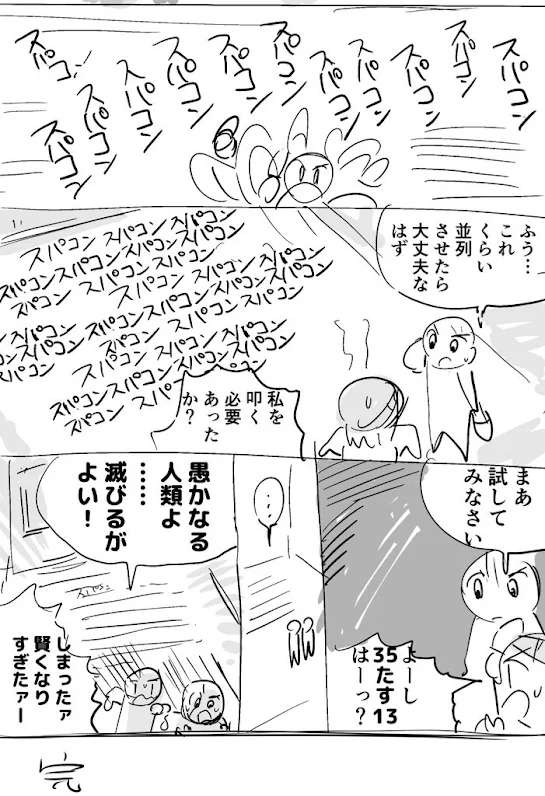 スパコン
スパコン
スパコン
スパコン
スパコン
スパコン
スパコン
スパコン
スパコン
スパコン
スパコン
ふう…
これ
くらい
並列
させたら
大丈夫な
はず
スパコン スパコン スパコン
スパコンスパコンスパコン
スパコン スパコン スパコン
スパコンスパコンスパコンスパコン
スパコン スパコン スパコン
スパコンスパコンスパコン
スパコン スパコン スパコン
スパコンスパコンスパコン
スパコン スパコン スパコン
スパコンスパコンスパコン
スパコン スパ
私を
叩く
必要
あった
か?
まあ
試して
みなさい
よーし
35たす13
はーっ?
…
愚かなる
人類よ
……
滅びるが
よい!
しまったァ
賢くなり
すぎたァー
完